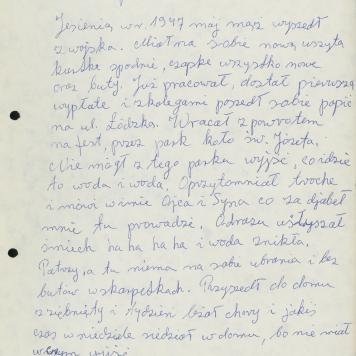 Jesienią w r. 1947 mój mąż wyszedł
z wojska. Miał na sobie nową uszytą
kurtkę spodnie, czapkę wszystko nowe
oraz buty. Już pracował, dostał pierwszą
wypłatę i z kolegami poszedł sobie popić
na ul. Łódzka. Wracał z powrotem
na fest, przez park koło św. Józefa.
Nie mógł z tego parku wyjść, co idzie
to woda i woda. Oprzytomniał trochę
i mówi w imie Ojca i Syna co za djabeł
mnie tu prowadzi. Odrazu usłyszał
śmiech ha ha ha ha i woda znikła.
Patrzy, a tu niema na sobie ubrania i bez
butów w skarpetkach. Przyszedł do domu
zziębnięty i tydzień leżał chory i jakiś
czas w niedziele siedział w domu, bo nie miał
w czym wyjść